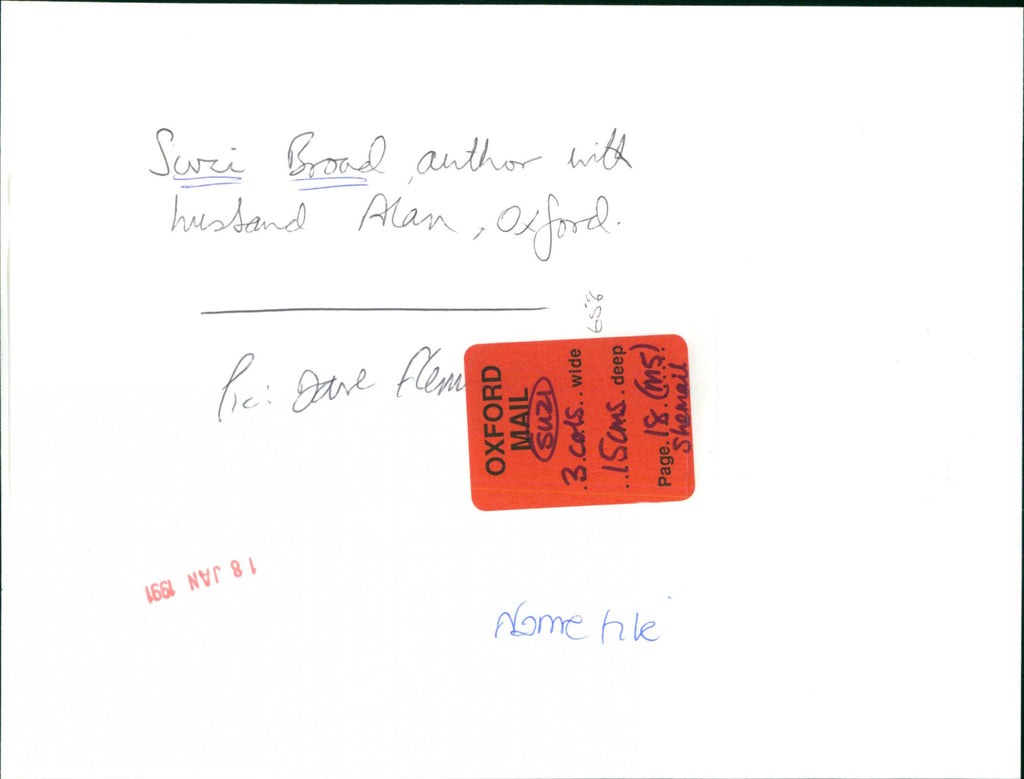 Suzi Broad, author with
husband Alan, Oxford.
658
Pic: Dave Flem
OXFORD
MAIL
SUZI
3 cols wide
15cms deep
Page 18 (MS)
Shemail
18 JAN 1991
Name file